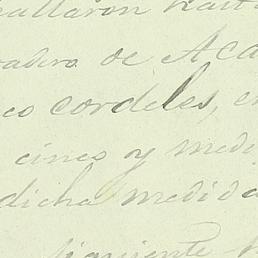 callaron hast
radero de Aca
co cordeles, e
cinco y medi
dicha medida
siguiente